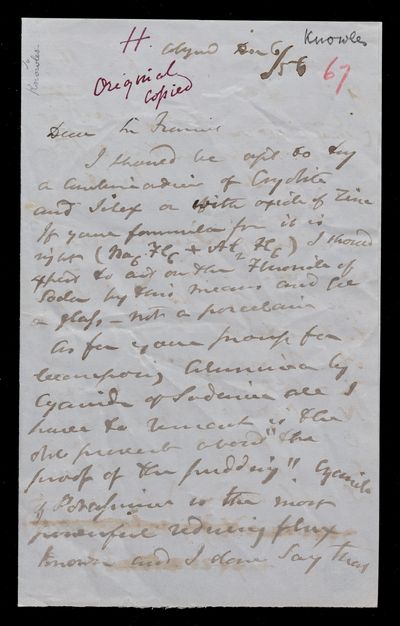 H.
Knowles
Dec 6/56
67
Original
copied
To
Knowles
Dear Sir Francis
I should be apt to try
a combination of Cryolite
and Silex or with oxide of Zinc
If your formula for it is
right ( + ) I should
expect to act on the Fluoride of
Soda by this means and get
a glass - not a porcelain
As for your process for
Alumina by
Cyanide of Sodium all I
have to remark is the
old proverb about "the
proof of the pudding" Cyanide
of Potassium is the most
powerful reducing flux
known and I dare say that